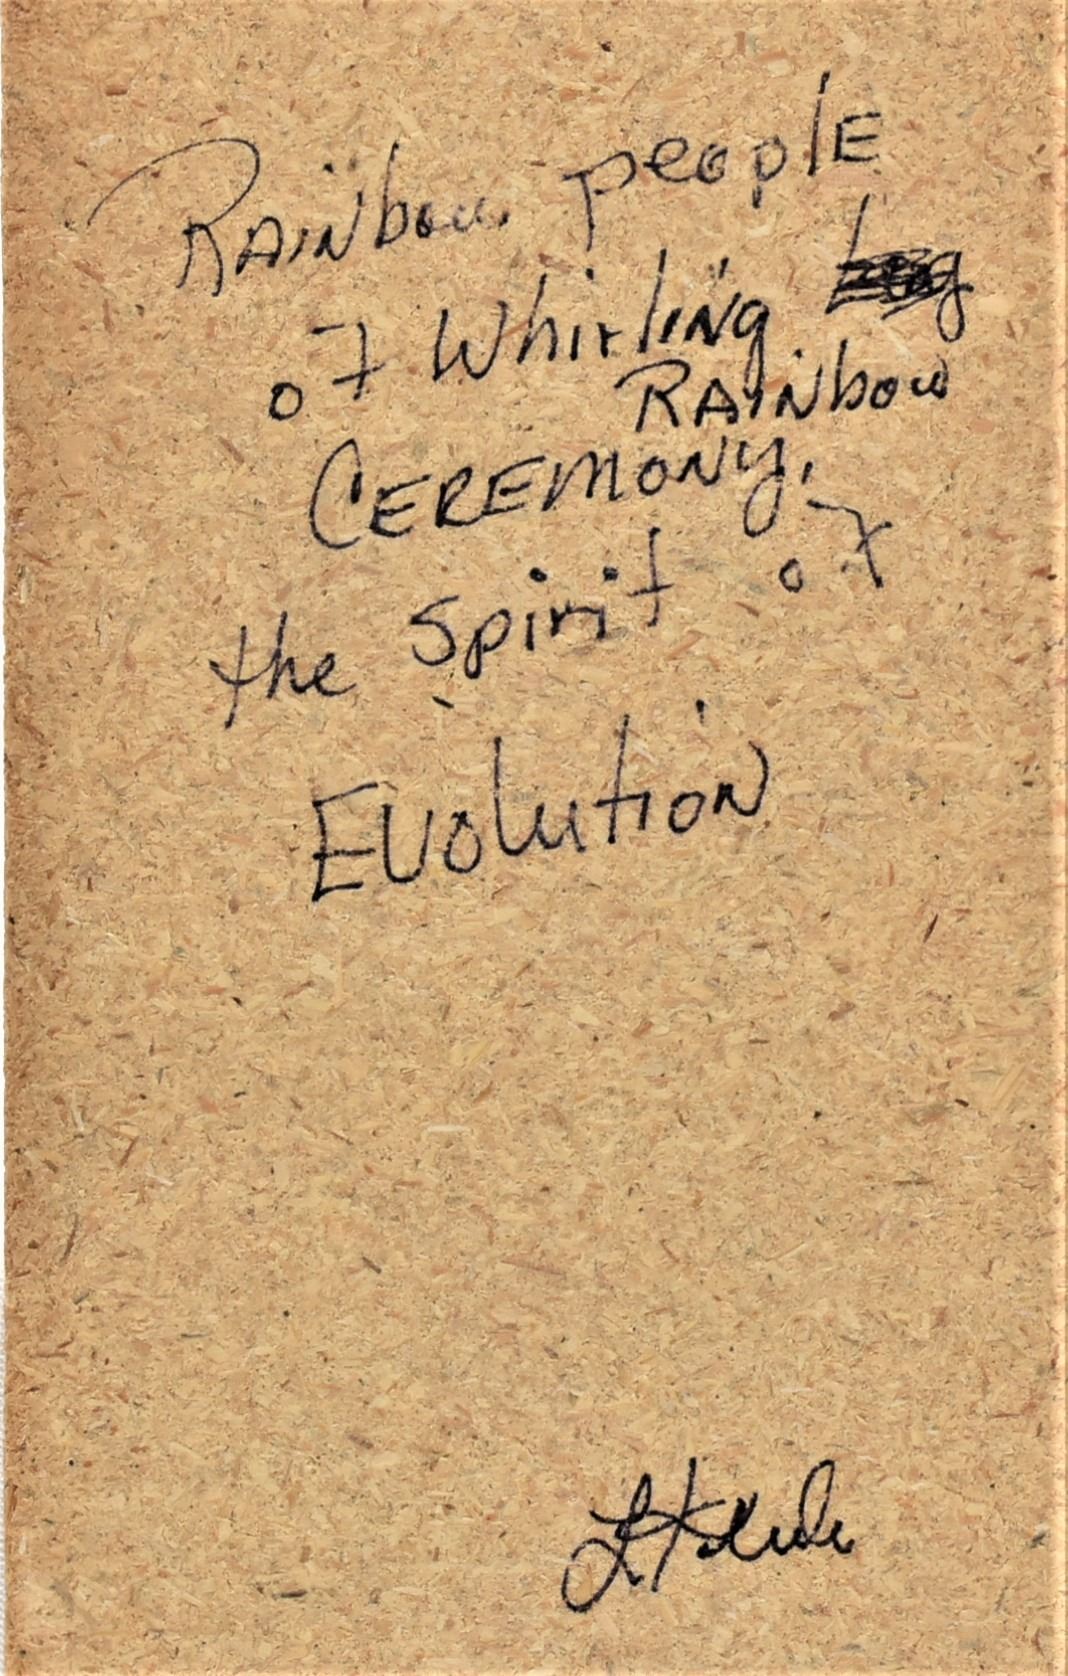 RAiNbow peoplE
of Whirling
RAiNbow
CEREMONY,
the Spirit of
Evolution